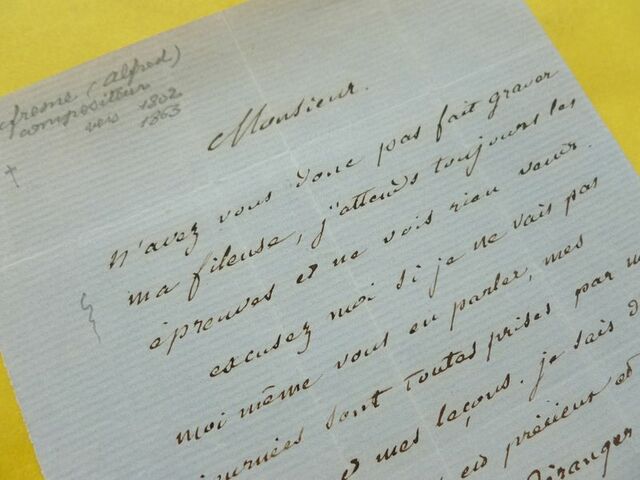 fresne (Alfred)
compositeur
vers 1802
1863
Monsieur.
N'avez vous donc pas fait graver
ma fileuse, j'attends toujours les
épreuves et ne vois rien venir.
excusez moi si je ne vais pas
moi même vous en parler, mes
journées sont toutes prises par
et mes leçons. je sais
est précieux et
Béranger